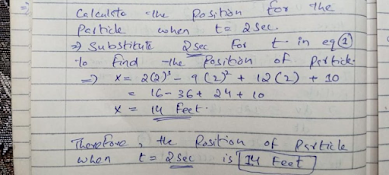 Calculate the Position for the
Particle when t= 2 Sec.
⇒ Substitute 2 sec for t in eq ①
to find the Position of Particle
⇒ x = 2(2)³ - 9(2)² + 12(2) + 10
= 16 - 36 + 24 + 10
x = 14 feet.
Therefore, the Position of Particle
when t = 2 sec is 14 Feet